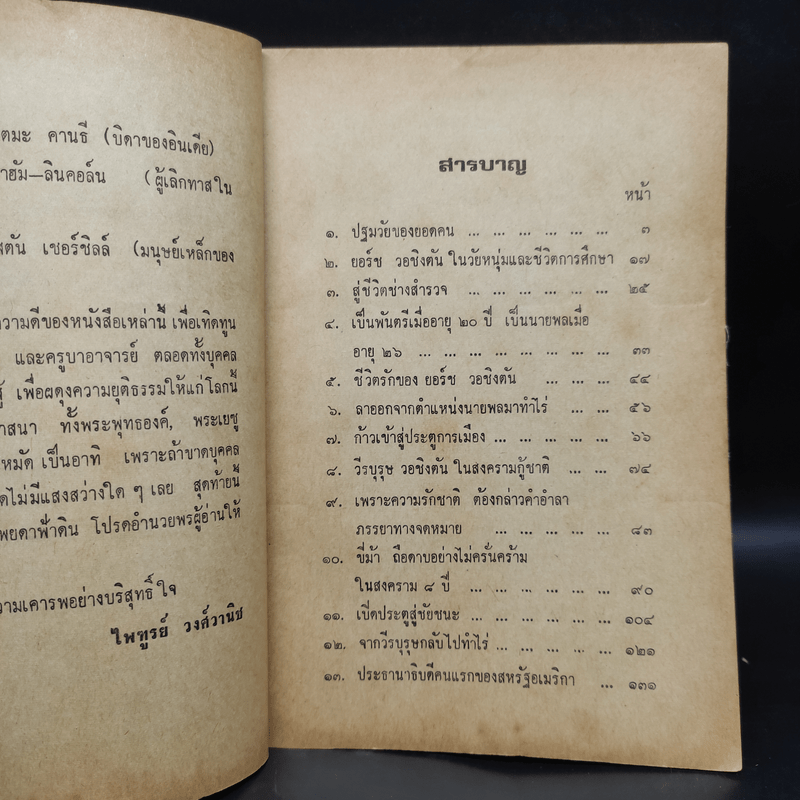 ตมะ คานธี (บิดาของอินเดีย)
าฮัม—ลินคอล์น (ผู้เลิกทาสใน
สตัน เชอร์ชิลล์ (มนุษย์เหล็กของ
วามดีของหนังสือเหล่านี้ เพื่อเทิดทูน
และครูบาอาจารย์ ตลอดทั้งบุคคล
รู้ เพื่อผดุงความยุติธรรมให้แก่โลกนี้
าสนา ทั้งพระพุทธองค์, พระเยซู
หมัด เป็นอาทิ เพราะถ้าขาดบุคคล
ดไม่มีแสงสว่างใด ๆ เลย สุดท้ายนี้
พยดาฟ้าดิน โปรดอำนวยพรผู้อ่านให้
วามเคารพอย่างบริสุทธิ์ใจ
ไพฑูรย์ วงศ์วานิช
สารบาญ
หน้า
๑. ปฐมวัยของยอดคน ... ... ... ... ... ... ๓
๒. ยอร์ช วอชิงตัน ในวัยหนุ่มและชีวิตการศึกษา ๑๗
๓. สู่ชีวิตช่างสำรวจ ... ... ... ... ... ... ๒๕
๔. เป็นพันตรีเมื่ออายุ ๒๐ ปี เป็นนายพลเมื่อ
อายุ ๒๖ ... ... ... ... ... ... ... ... ๓๓
๕. ชีวิตรักของ ยอร์ช วอชิงตัน ... ... ... ๔๔
๖. ลาออกจากตำแหน่งนายพลมาทำไร่ ... ... ๕๖
๗. ก้าวเข้าสู่ประตูการเมือง ... ... ... ... ... ๖๖
๘. วีรบุรุษ วอชิงตัน ในสงครามกู้ชาติ ... ... ๗๔
๙. เพราะความรักชาติ ต้องกล่าวคำอำลา
ภรรยาทางจดหมาย ... ... ... ... ... ๘๓
๑๐. ขี่ม้า ถือดาบอย่างไม่ครั่นคร้าม
ในสงคราม ๘ ปี ... ... ... ... ... ... ๙๐
๑๑. เบิดประตูสู่ชัยชนะ ... ... ... ... ... ... ๑๐๔
๑๒. จากวีรบุรุษกลับไปทำไร่ ... ... ... ... ... ๑๒๑
๑๓. ประธานาธิบดีคนแรกของสหรัฐอเมริกา ... ๑๓๑